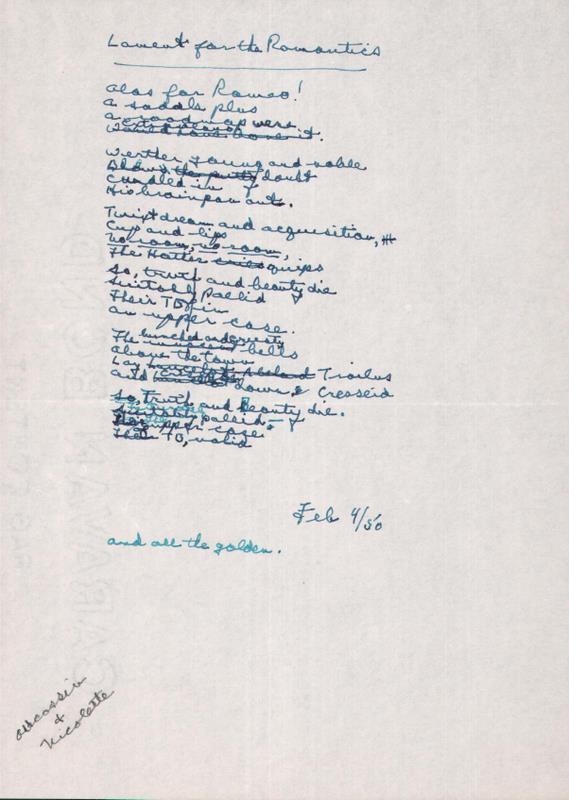 Lament for the Romantics
Alas for Romeo!
A saddle plus
a roadmap were
would have done it.
Werther young and noble
doubt
Curdled in
His brainpan out.
Twixt dream and acquisition,
Cup and lip
No room, no room,
The Hatter quips
So, truth and beauty die
Suitably Pallid
Their TB in
an upper case.
The hunched and
bells
above the town
Lay Troilus
and lower, Cresseid
So, Truth and Beauty die.
pallid
upper case
Their TB, valid
Feb 4/50
and all the golden.
Aucassin
&
Nicolette